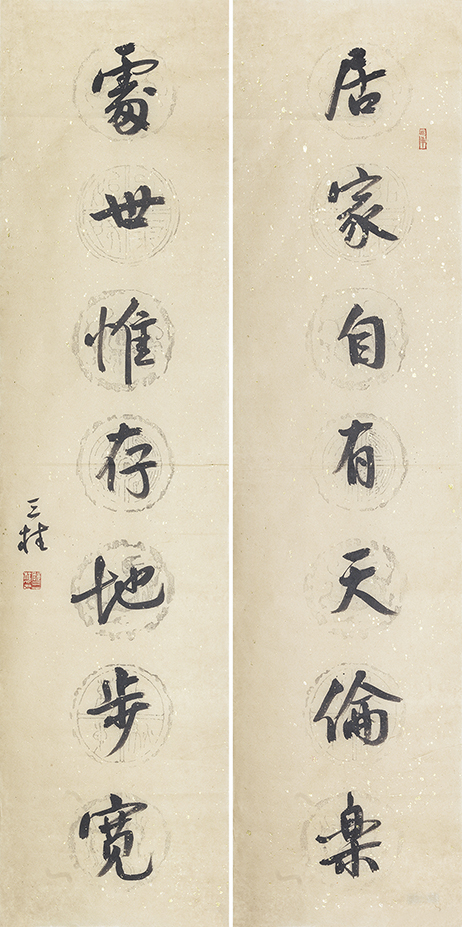 居家自有天倫楽
處世惟存地步寬
三桂